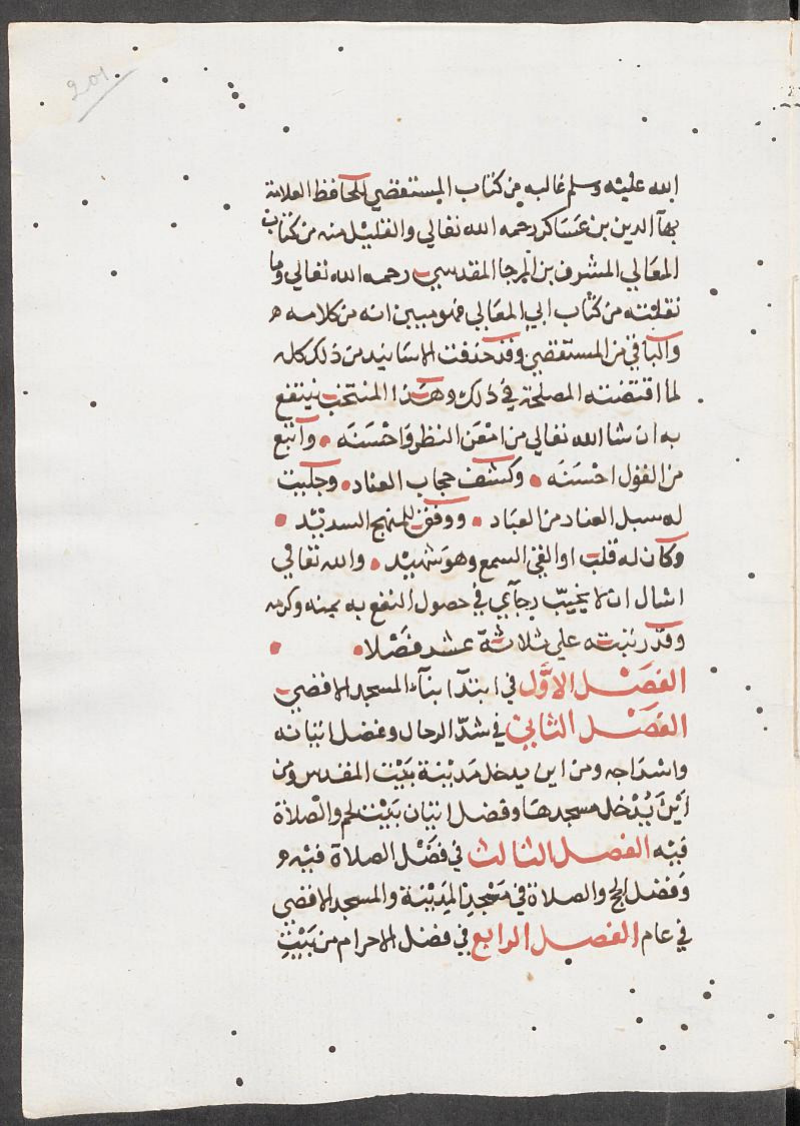 201
الله عليه وسلم غالبه من كتاب المستقصي للحافظ العلامة
بهآ الدين بن عساكر رحمه الله تعالي والقليل منه من كتاب
المعالي المشرف بن المرجا المقدسي رحمه الله تعالي وما
نقلته من كتاب ابي المعالي فهو مبين انه من كلامه ه
والباقي من المستقصي وقد حذفت الاسانيد من ذلك كله
لما اقتضته المصلحة في ذلك وهذا المنتخب ينتفع
به ان شا الله تعالي من امعن النظر واحسنه • واتبع
من القول احسنه • وكشف حجاب العناد • وجلبت
له سبل العناد من العباد • ووفق للمنهج السديد •
وكان له قلب او القي السمع وهو شهيد • والله تعالي
اسال ان لا يخيب رجآي في حصول النفع به بمنه وكرمه
وقد رتبته علي ثلاثة عشر فصلا • •
الفصل الاول في ابتدآ بنآء المسجد الاقصي
الفصل الثاني في شد الرحال وفضل اتيانه
واسراجه ومن اين يدخل مدينة بيت المقدس ومن
اين يدخل مسجدها وفضل اتيان بيت لحم والصلاة
فيه الفصل الثالث في فضل الصلاة فيه و
وفضل الحج والصلاة في مسجد المدينة والمسجد الاقصي
في عام الفصل الرابع في فضل الاحرام من بيت